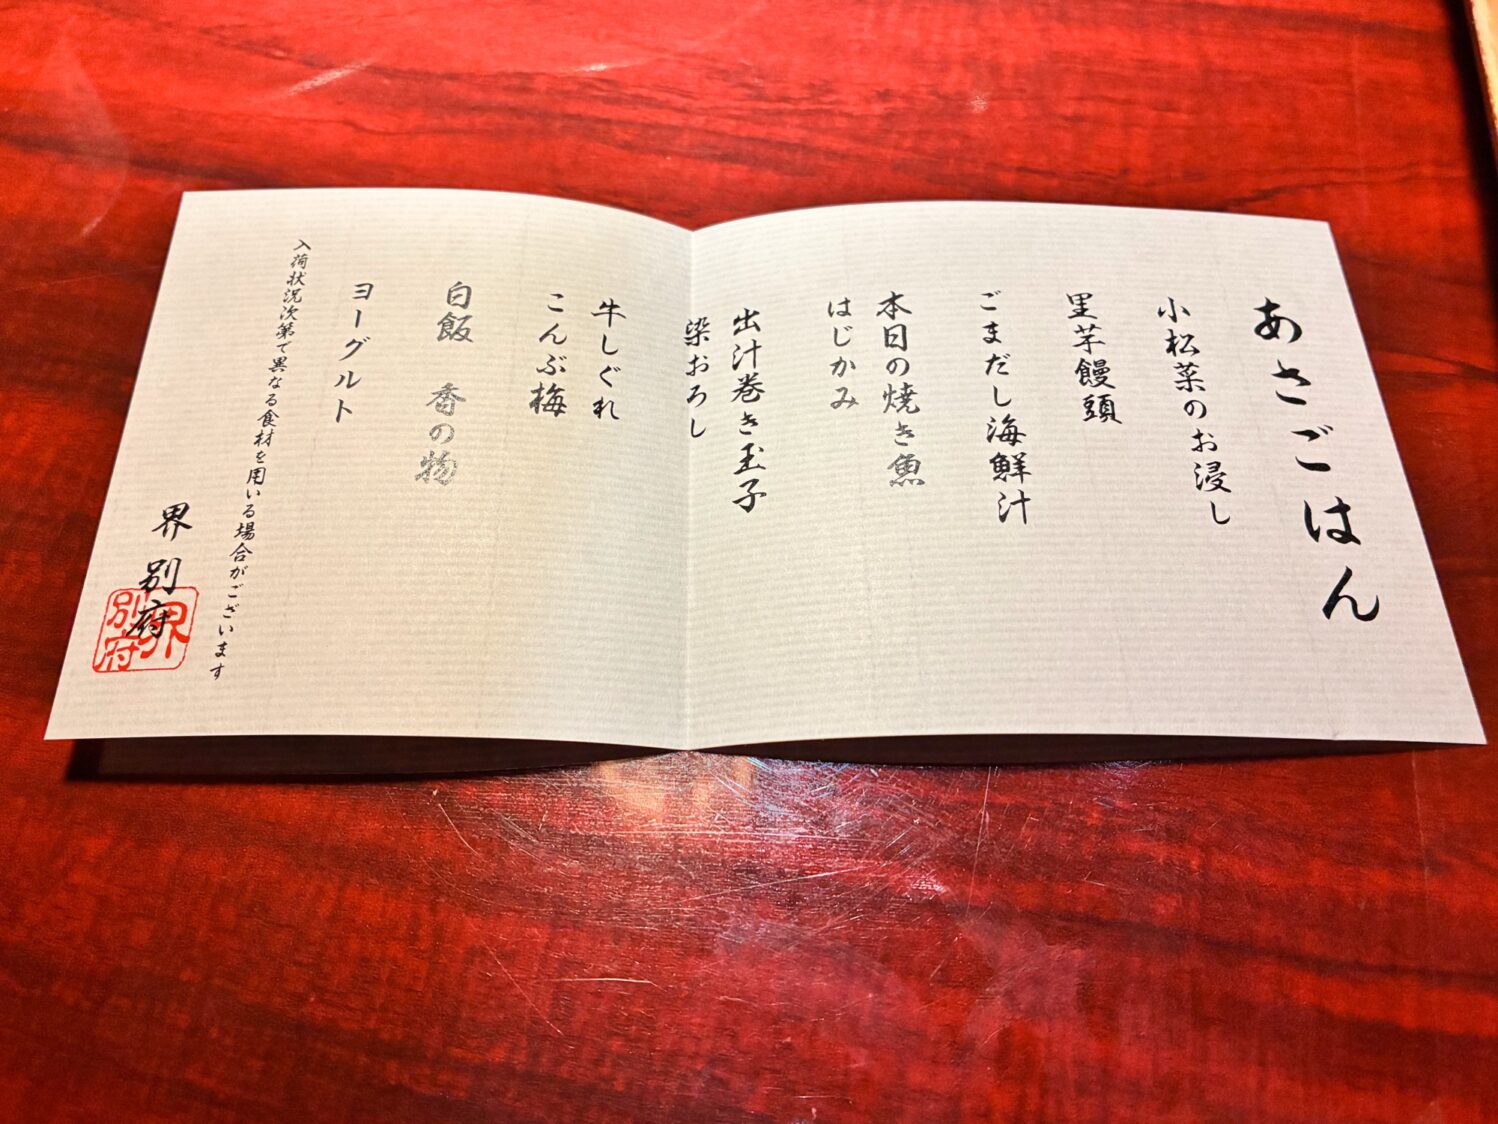 あさごはん
小松菜のお浸し
里芋饅頭
ごまだし海鮮汁
本日の焼き魚
はじかみ
出汁巻き玉子
染おろし
牛しぐれ
こんぶ梅
白飯　香の物
ヨーグルト
入荷状況次第で異なる食材を用いる場合がございます
界 別府
界
別府